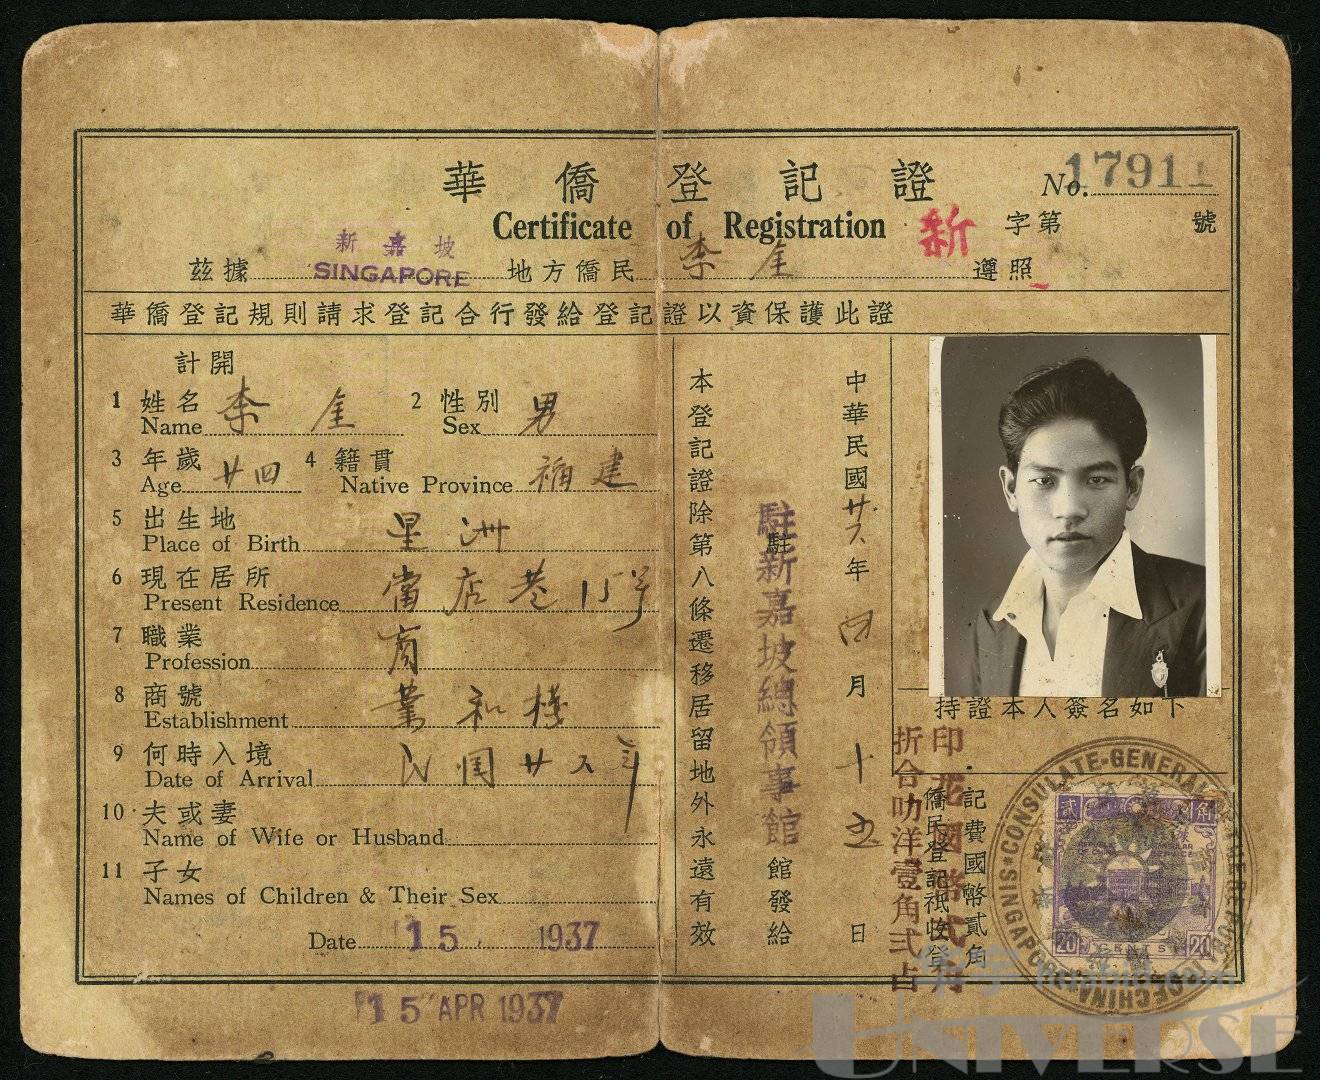 華僑登記證
No. 17911
Certificate of Registration
新字第 號
新嘉坡
茲據 SINGAPORE 地方僑民 李 遵照
華僑登記規則請求登記合行發給登記證以資保護此證
計開
1 姓名 李
Name
2 性別 男
Sex
3 年歲 廿四
Age
4 籍貫 福建
Native Province
5 出生地 星洲
Place of Birth
6 現在居所 當店巷15号
Present Residence
7 職業 商
Profession
8 商號 業和棧
Establishment
9 何時入境 民国廿六年
Date of Arrival
10 夫或妻
Name of Wife or Husband
11 子女
Names of Children & Their Sex
Date 15 1937
15 APR 1937
中華民國廿六年四月十五日
駐 館發給
駐新嘉坡總領事館
本登記證除第八條遷移居留地外永遠有效
持證本人簽名如下
記費國幣貳角
僑民登記祇收登
印花國幣弍角
折合叻洋壹角弍占
CONSULATE-GENERAL OF THE REPUBLIC OF CHINA
SINGAPORE
貳 角
20 CENTS 20
UNIVERSE